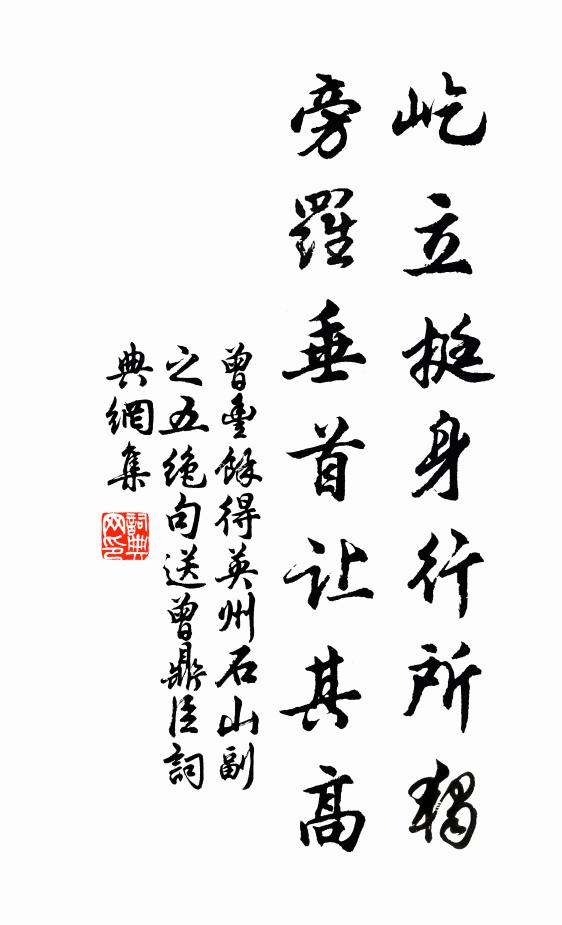 屹立挺身行所独
旁羅垂首让其高
曾豊餘得英州石山副
之五绝句送曾鼎臣詞
典網集
詞典网印